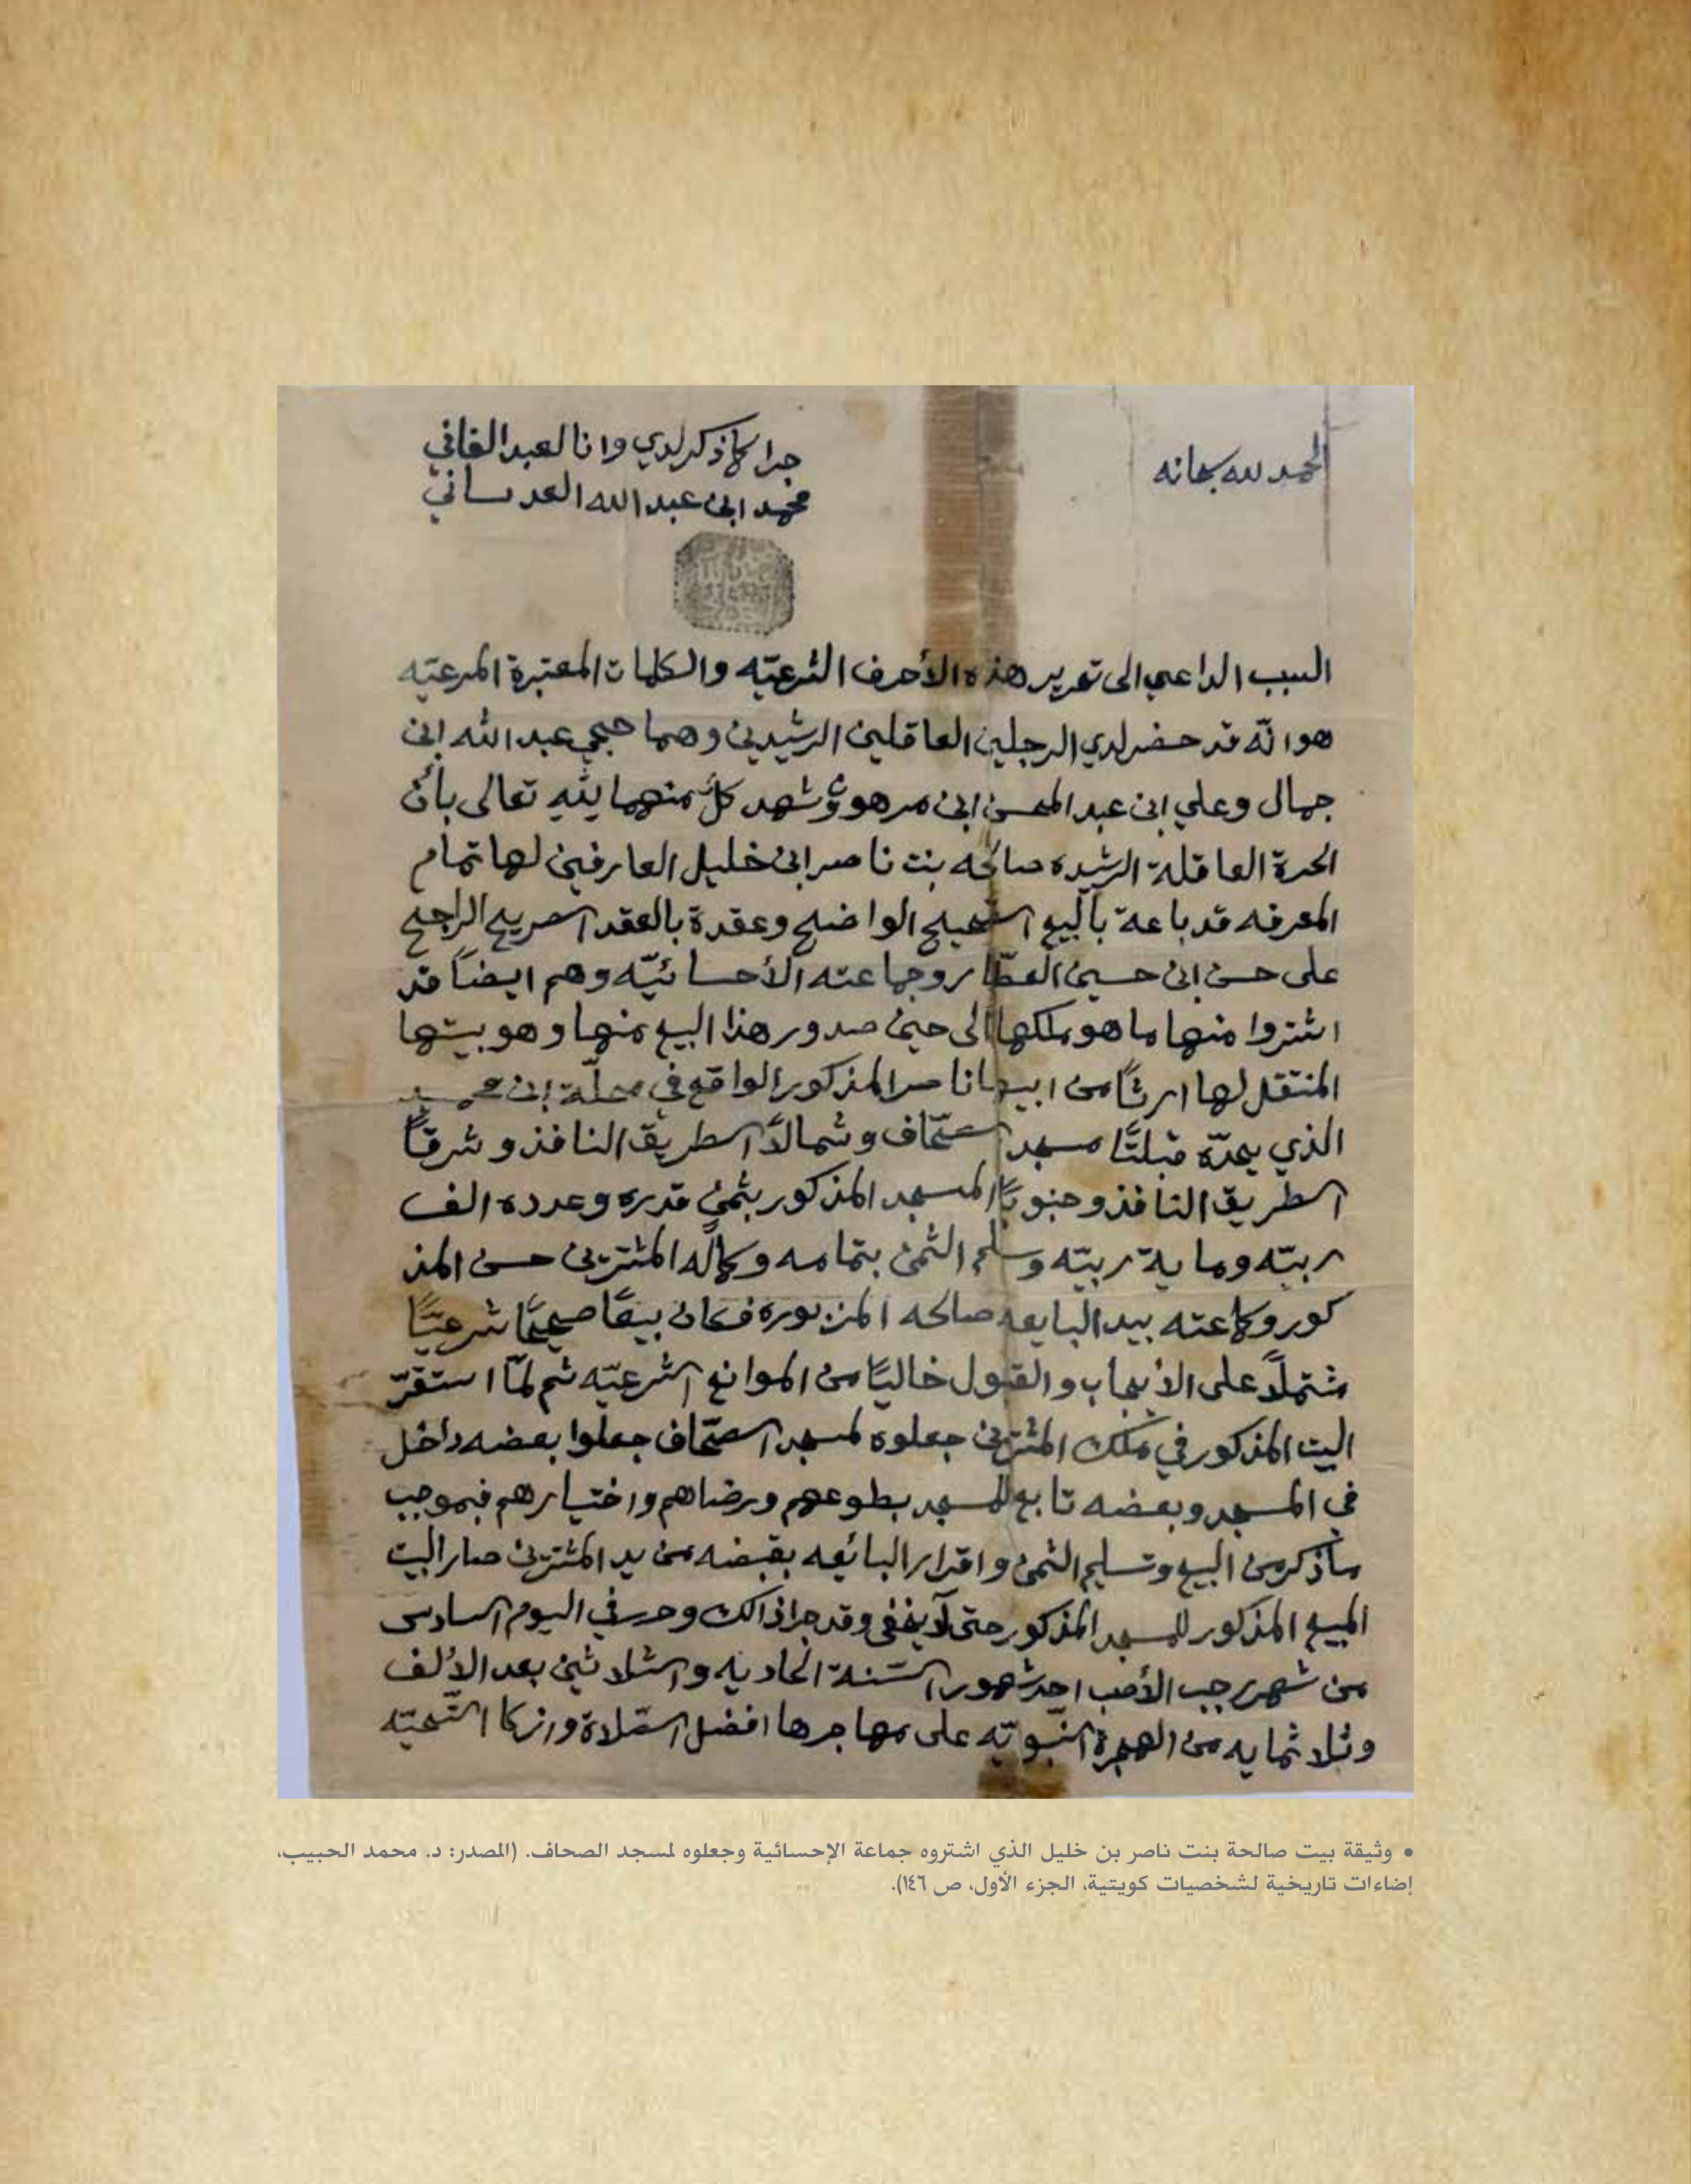 الحمد لله سبحانه
جرا كما ذكر لدي وانا العبد الفاني
محمد ابن عبد الله العدساني
السبب الداعي الى تحرير هذه الأحرف الشرعيّه والكلمات المعتبرة المرعيّه
هو انّه قد حضر لدي الرجلين العاقلين الرشيدين وهما حجي عبد الله ابن
جمال وعلي ابن عبد المحسن ابن مرهون وشهد كلٌ منهما لله تعالى بأن
الحرة العاقلة الرشيده صالحه بنت ناصر ابن خليل العارفين لها تمام
المعرفه قد باعة بالبيع الصحيح الواضح وعقدة بالعقد الصريح الراجح
على حسن ابن حسين العطّار وجماعته الأحسائيّه وهم ايضاً قد
اشتروا منها ما هو ملكها الى حين صدور هذا البيع منها وهو بيتها
المنتقل لها ارثاً من ابيها ناصر المذكور الواقع في محلّة ابن
الذي يحدّه قبلتًا مسجد الصحّاف وشمالاً الطريق النافذ وشرقاً
الطريق النافذ وجنوباً المسجد المذكور بثمنٍ قدره وعدده الف
ربيّه وماية ربيّه وسلم الثمن بتمامه وكماله المشترين حسن المذ
كور وجماعته بيد البايعه صالحه المزبوره فكان بيعًا صحيحًا شرعيًّا
مشتملاً على الأيجاب والقبول خاليًا من الموانع الشرعيّه ثم لمّا استقرّ
البيت المذكور في ملك المشترين جعلوه لمسجد الصحّاف جعلوا بعضه داخل
في المسجد وبعضه تابع للمسجد بطوعهم ورضاهم واختيارهم فبموجب
ماذكر من البيع وتسليم الثمن واقرار البائعه بقبضه من يد المشترين صار البيت
المبيع المذكور للمسجد المذكور حتى لا يخفى وقد جرا ذالك وحرر في اليوم السادس
من شهر رجب الأصب احد شهور السّنة الحاديه والثلاثين بعد الألف
وثلاثمايه من الهجرة النّبويّه على مهاجرها افضل الصّلاة وازكا التّحيّه
• وثيقة بيت صالحة بنت ناصر بن خليل الذي اشتروه جماعة الإحسائية وجعلوه لمسجد الصحاف. (المصدر: د. محمد الحبيب،
إضاءات تاريخية لشخصيات كويتية، الجزء الأول، ص ١٤٦).